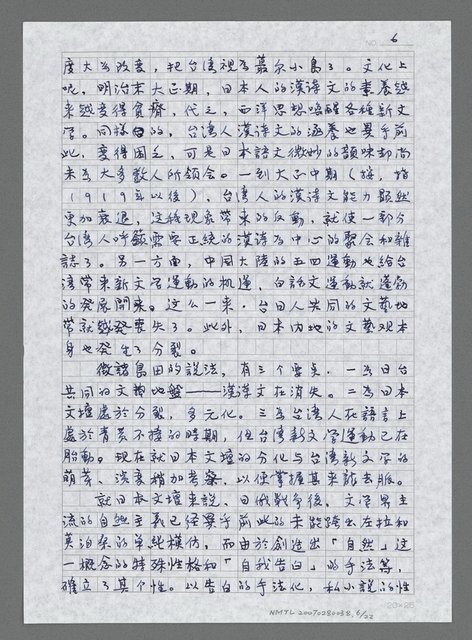 6
度大為改變，把台湾視為蕞尔小島了。文化上
呢，明治末大正期，日本人的漢詩文的素養越
來越变得貧瘠，代之，西洋思想喚醒各種新文
学。同様的，台湾人漢詩文的涵养也異乎前
此，変得困乏，可是日本語文微妙的韻味却尚
未為大多数人所領会。一到大正中期（按，指
1919年以後），台湾人的漢詩文能力顕然
更加衰退，這種現象帶来的反動，就使一部分
台湾人呼籲需要正統的漢詩為中心的聚会和雜
誌了。另一方面，中国大陸的五四運動也給台
湾帶来新文学運動的机運，白話文運動就蓬勃
的發展開来。這么一来，台日人共同的文藝地
帶就越發喪失了。此外，日本内地的文藝观本
身也発生了分裂。
徵諸島田的說法，有三个要点，一為日台
共同的文藝地盤——漢詩文在消失。二為日本
文壇處於分裂，多元化。三為台湾人在語言上
處於青黃不接的時期，但台湾新文学運動已在
胎動。現在就日本文壇的分化与台湾新文学的
萌芽，淡淡稍加考察，以便掌握其来龍去脈。
就日本文壇来說，日俄戦争後，文学界主
流的自然主義已經異乎前此的未能跨出左拉和
莫泊桑的單純模仿，而由於創造出「自然」這
一概念的特殊性格和「自我告白」的手法等，
確立了其个性。以告白的手法化，私小說的性
NMTL 20070280038, 6/22